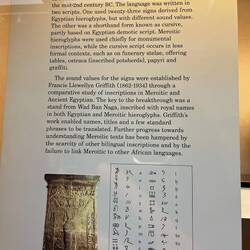 the mid-2nd century BC. The language was written in
two scripts. One used twenty-three signs derived from
Egyptian hieroglyphs, but with different sound values.
The other was a shorthand form known as cursive,
partly based on Egyptian demotic script. Meroitic
hieroglyphs were used chiefly for monumental
inscriptions, while the cursive script occurs in less
formal contexts, such as on funerary stelae, offering
tables, ostraca (inscribed potsherds), papyri and
graffiti.
The sound values for the signs were established by
Francis Llewellyn Griffith (1862-1934) through a
comparative study of inscriptions in Meroitic and
Ancient Egyptian. The key to the breakthrough was a
stand from Wad Ban Naga, inscribed with royal names
in both Egyptian and Meroitic hieroglyphs. Griffith's
work enabled names, titles and a few standard
phrases to be translated. Further progress towards
understanding Meroitic texts has been hampered by
the scarcity of other bilingual inscriptions and by the
failure to link Meroitic to other African languages.